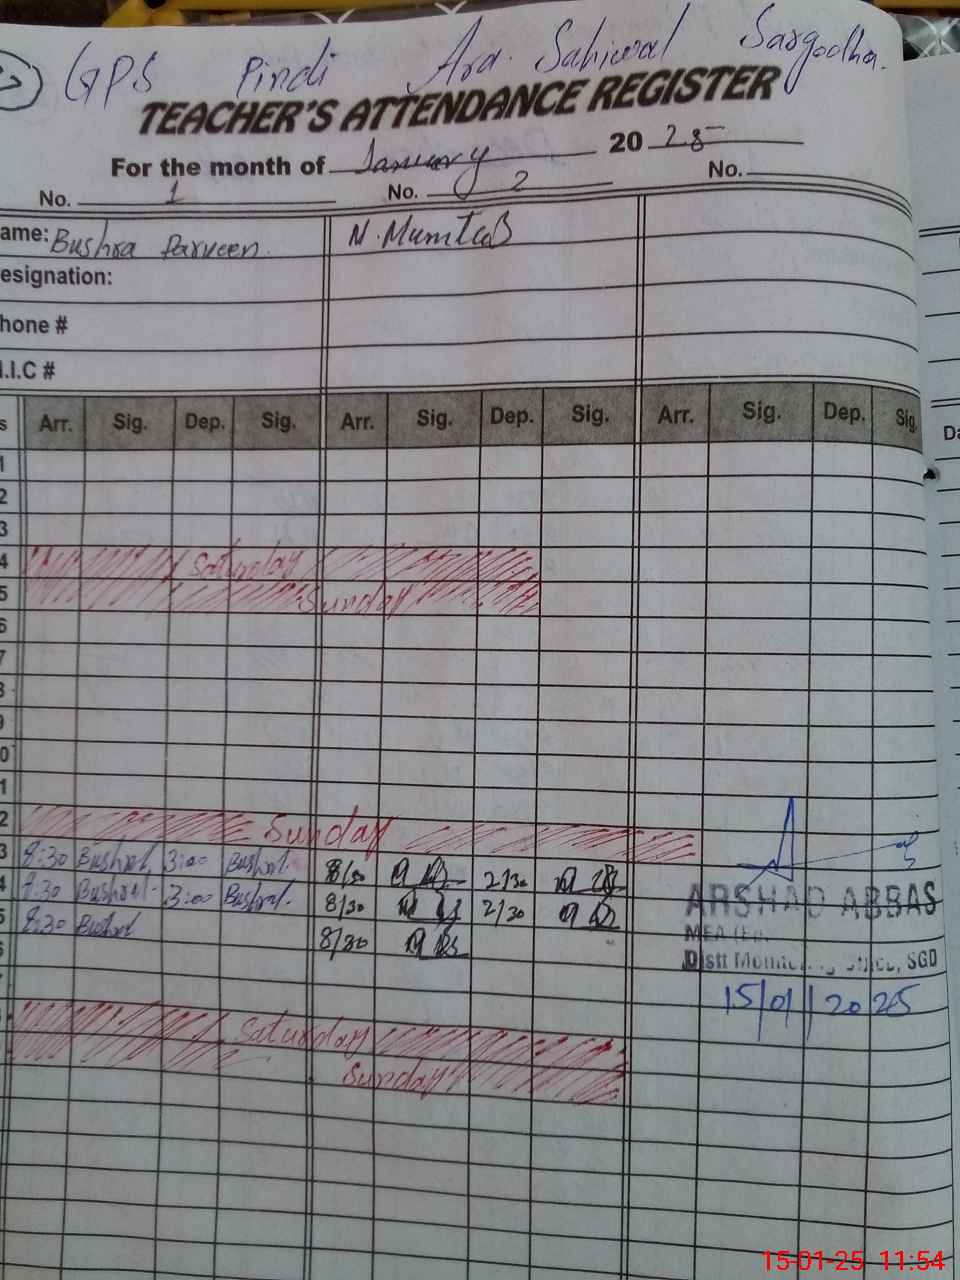 GPS Pindi Ara Sahiwal Sargodha.
TEACHER'S ATTENDANCE REGISTER
For the month of January 2025
No. 1 No. 2 No.
ame: Bushra Parveen. N. Mumtaz
esignation:
hone #
.I.C #
s Arr. Sig. Dep. Sig. Arr. Sig. Dep. Sig. Arr. Sig. Dep. Sig.
Da
1
2
3
4 Saturday
5 Sunday
6
7
8
9
0
1
2 Sunday
3 8:30 Bushra 3:00 Bushra. 8/30 2/30
4 8:30 Bushra 3:00 Bushra. 8/30 2/30
5 8:30 Bushra 8/30
6
Saturday
Sunday
ARSHAD ABBAS
MEA
Distt SGD
15/01/2025
15-01-25 11:54